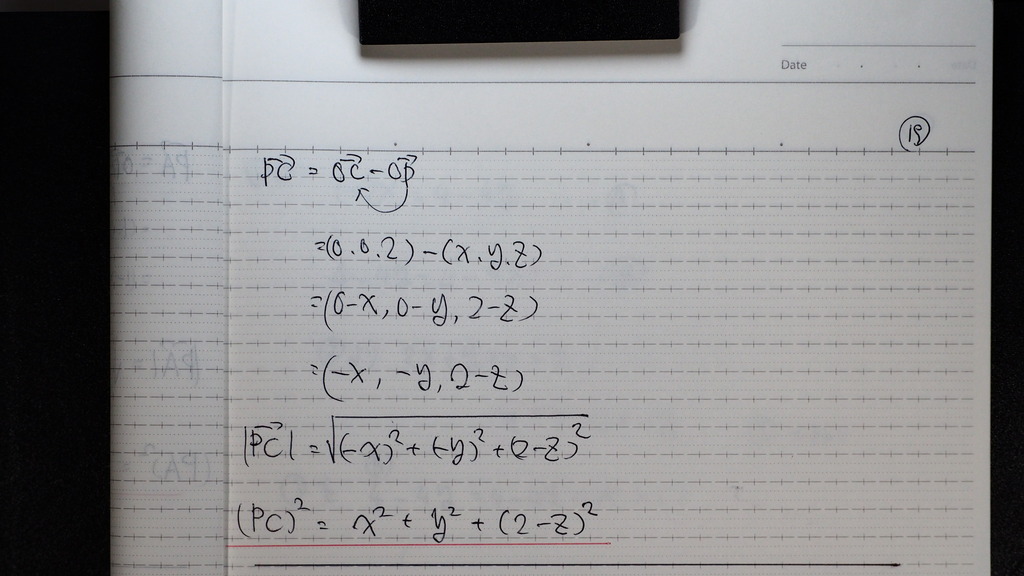 Date
19
PC⃗ = OC⃗ - OP⃗
=(0.0.2)-(x.y.z)
=(0-x,0-y,2-z)
=(-x,-y,2-z)
|PC⃗| = √((-x)²+(-y)²+(2-z)²)
(PC)² = x²+y²+(2-z)²